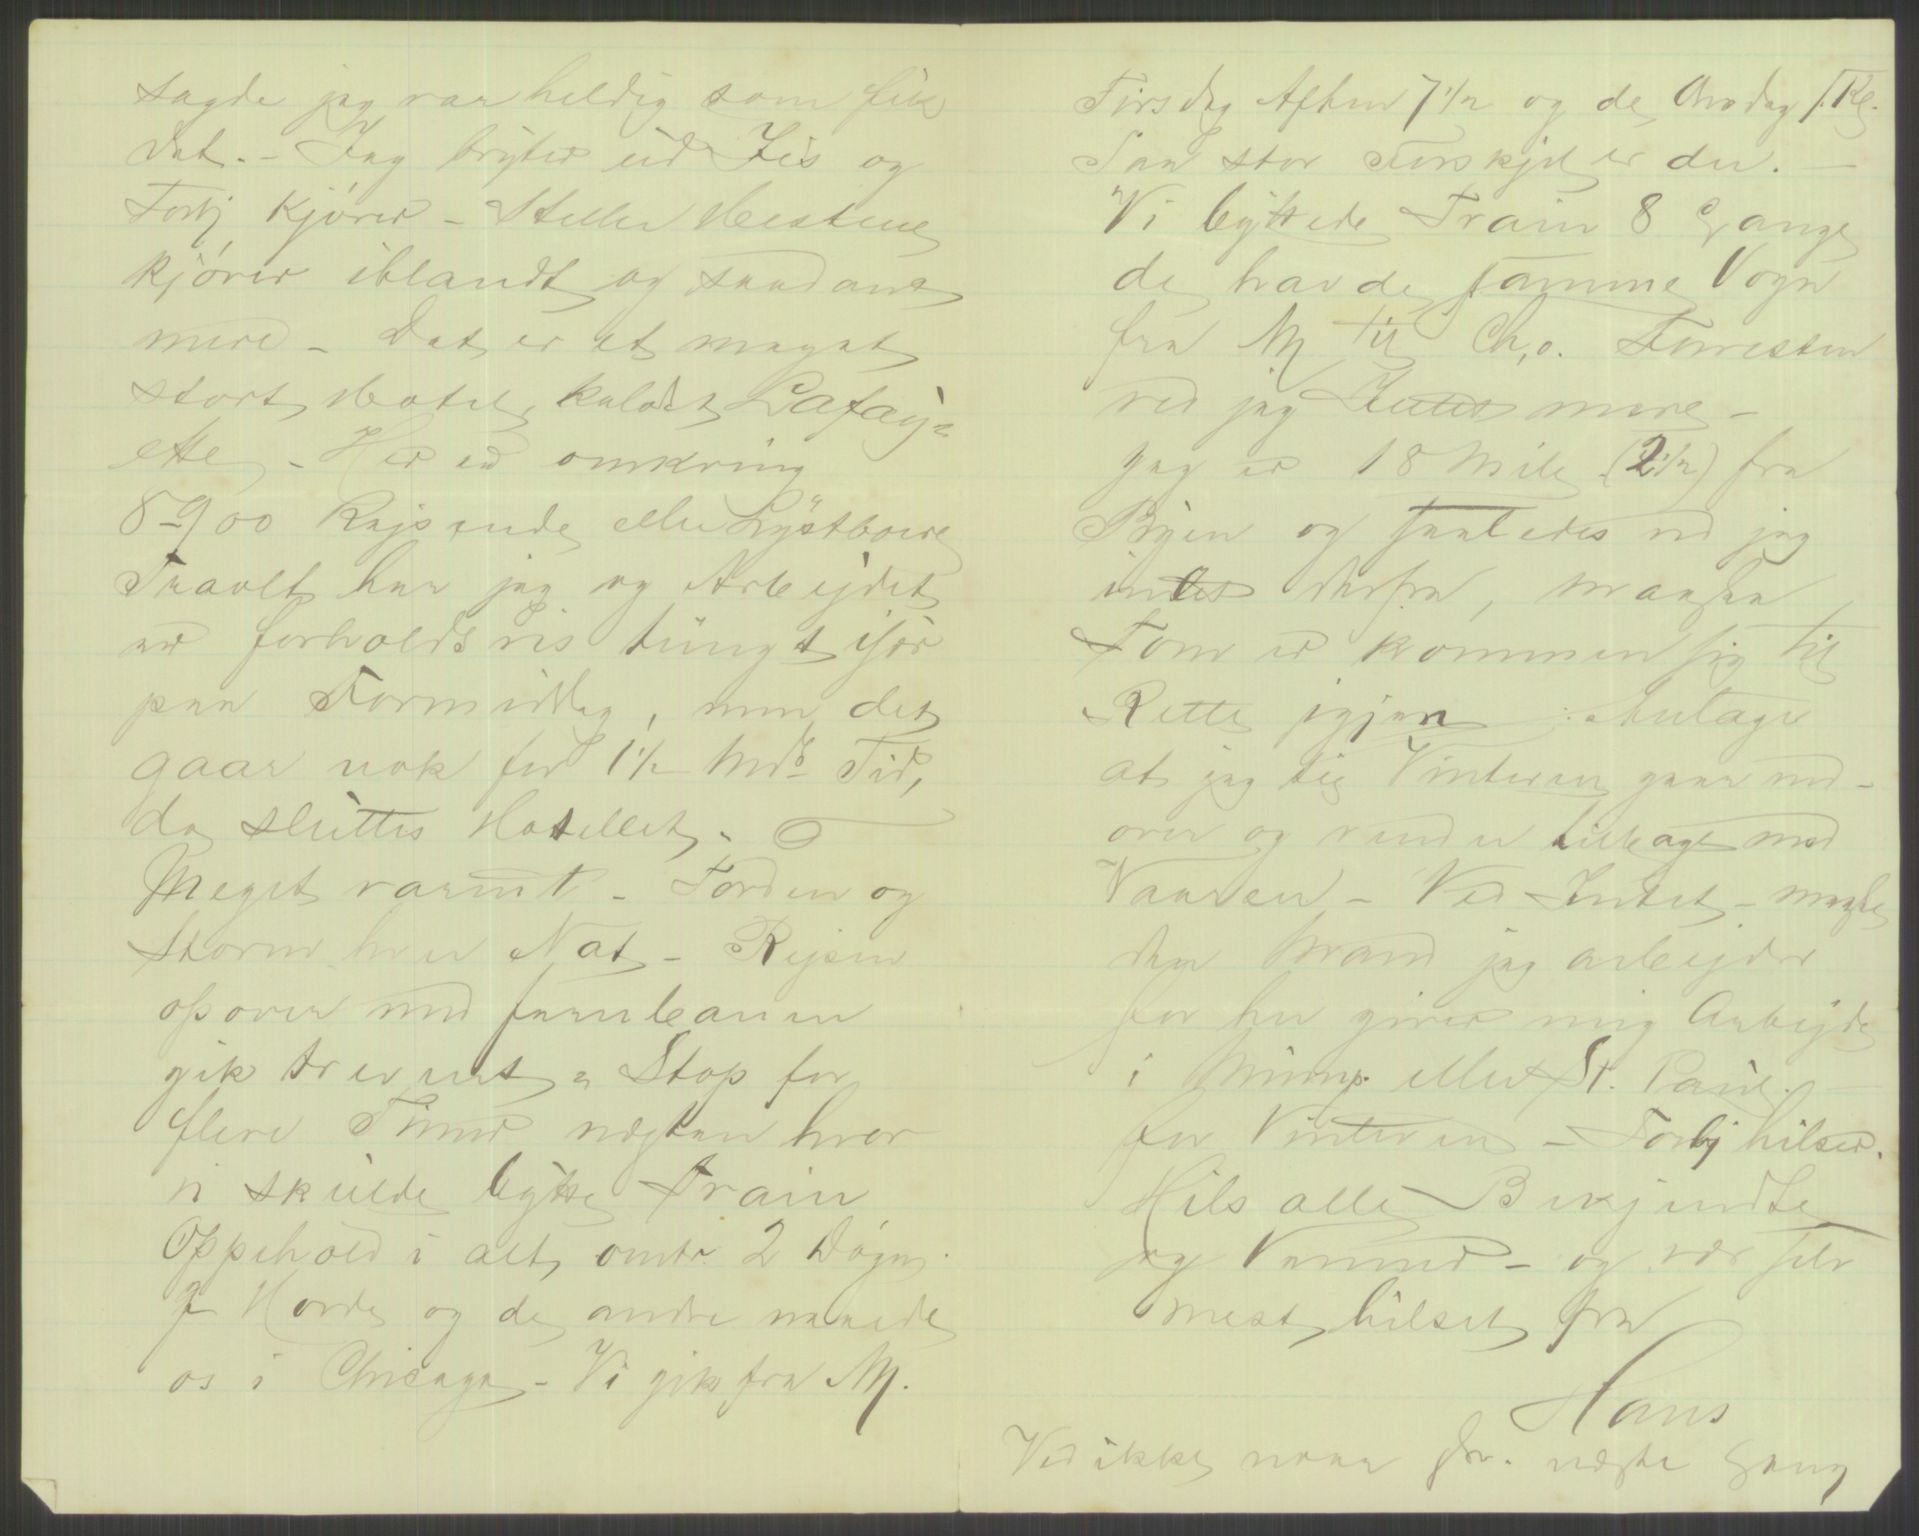 sagde jeg var heldig som fik
det. - Jeg bryter iid Jis og
Torbj kjörer - Steller Hestene
kjörer iblandt og saadant
mere - Det er et meget
stort Hotel, kaldet Lafay=
ette - Her er omkring
8-900 Rejsende eller Lystboere
Travlt har jeg og Arbejdet
er forholdsvis tungt isör
paa Formiddag, men det
gaar nok for 1 1/2 Mds Tid,
da sluttes Hotellet. -
Meget varmt - Torden og
Storm hver Nat - Rejsen
opover med Jernbanen
gik træent, Stop for
flere Timer næsten hver
vi skulde bytte train
Oppehold i alt, omtr. 2 Dögn.
Horde og de andre naaede
os i Chicago - Vi gik fra M.
Tirsdag Aften 7 1/2 og de Onsdag
Saa stor Forskjel er der. -
Vi byttede Train 8 Gange
de havde samme Vogn
fra M til Ch,o. Forresten
ved jeg Intet mere -
Jeg er 18 Mile (2 1/2) fra
Byen og saaledes ved jeg
intet derfra, maaske
Tom er kommen sig til
Rette igjen Antager
at jeg til Vinteren gaar ned-
over og vender tilbage med
Vaaren - Ved Intet - maaske
den Mand jeg arbejder
for her giver mig Arbejde
i Minnp. eller St. Paul. -
for Vinteren - Torbj hilser.
Hils alle Bekjendte
og Venner - og vær selv
mest hilset fra
Hans
Ved ikke naar næste Gang